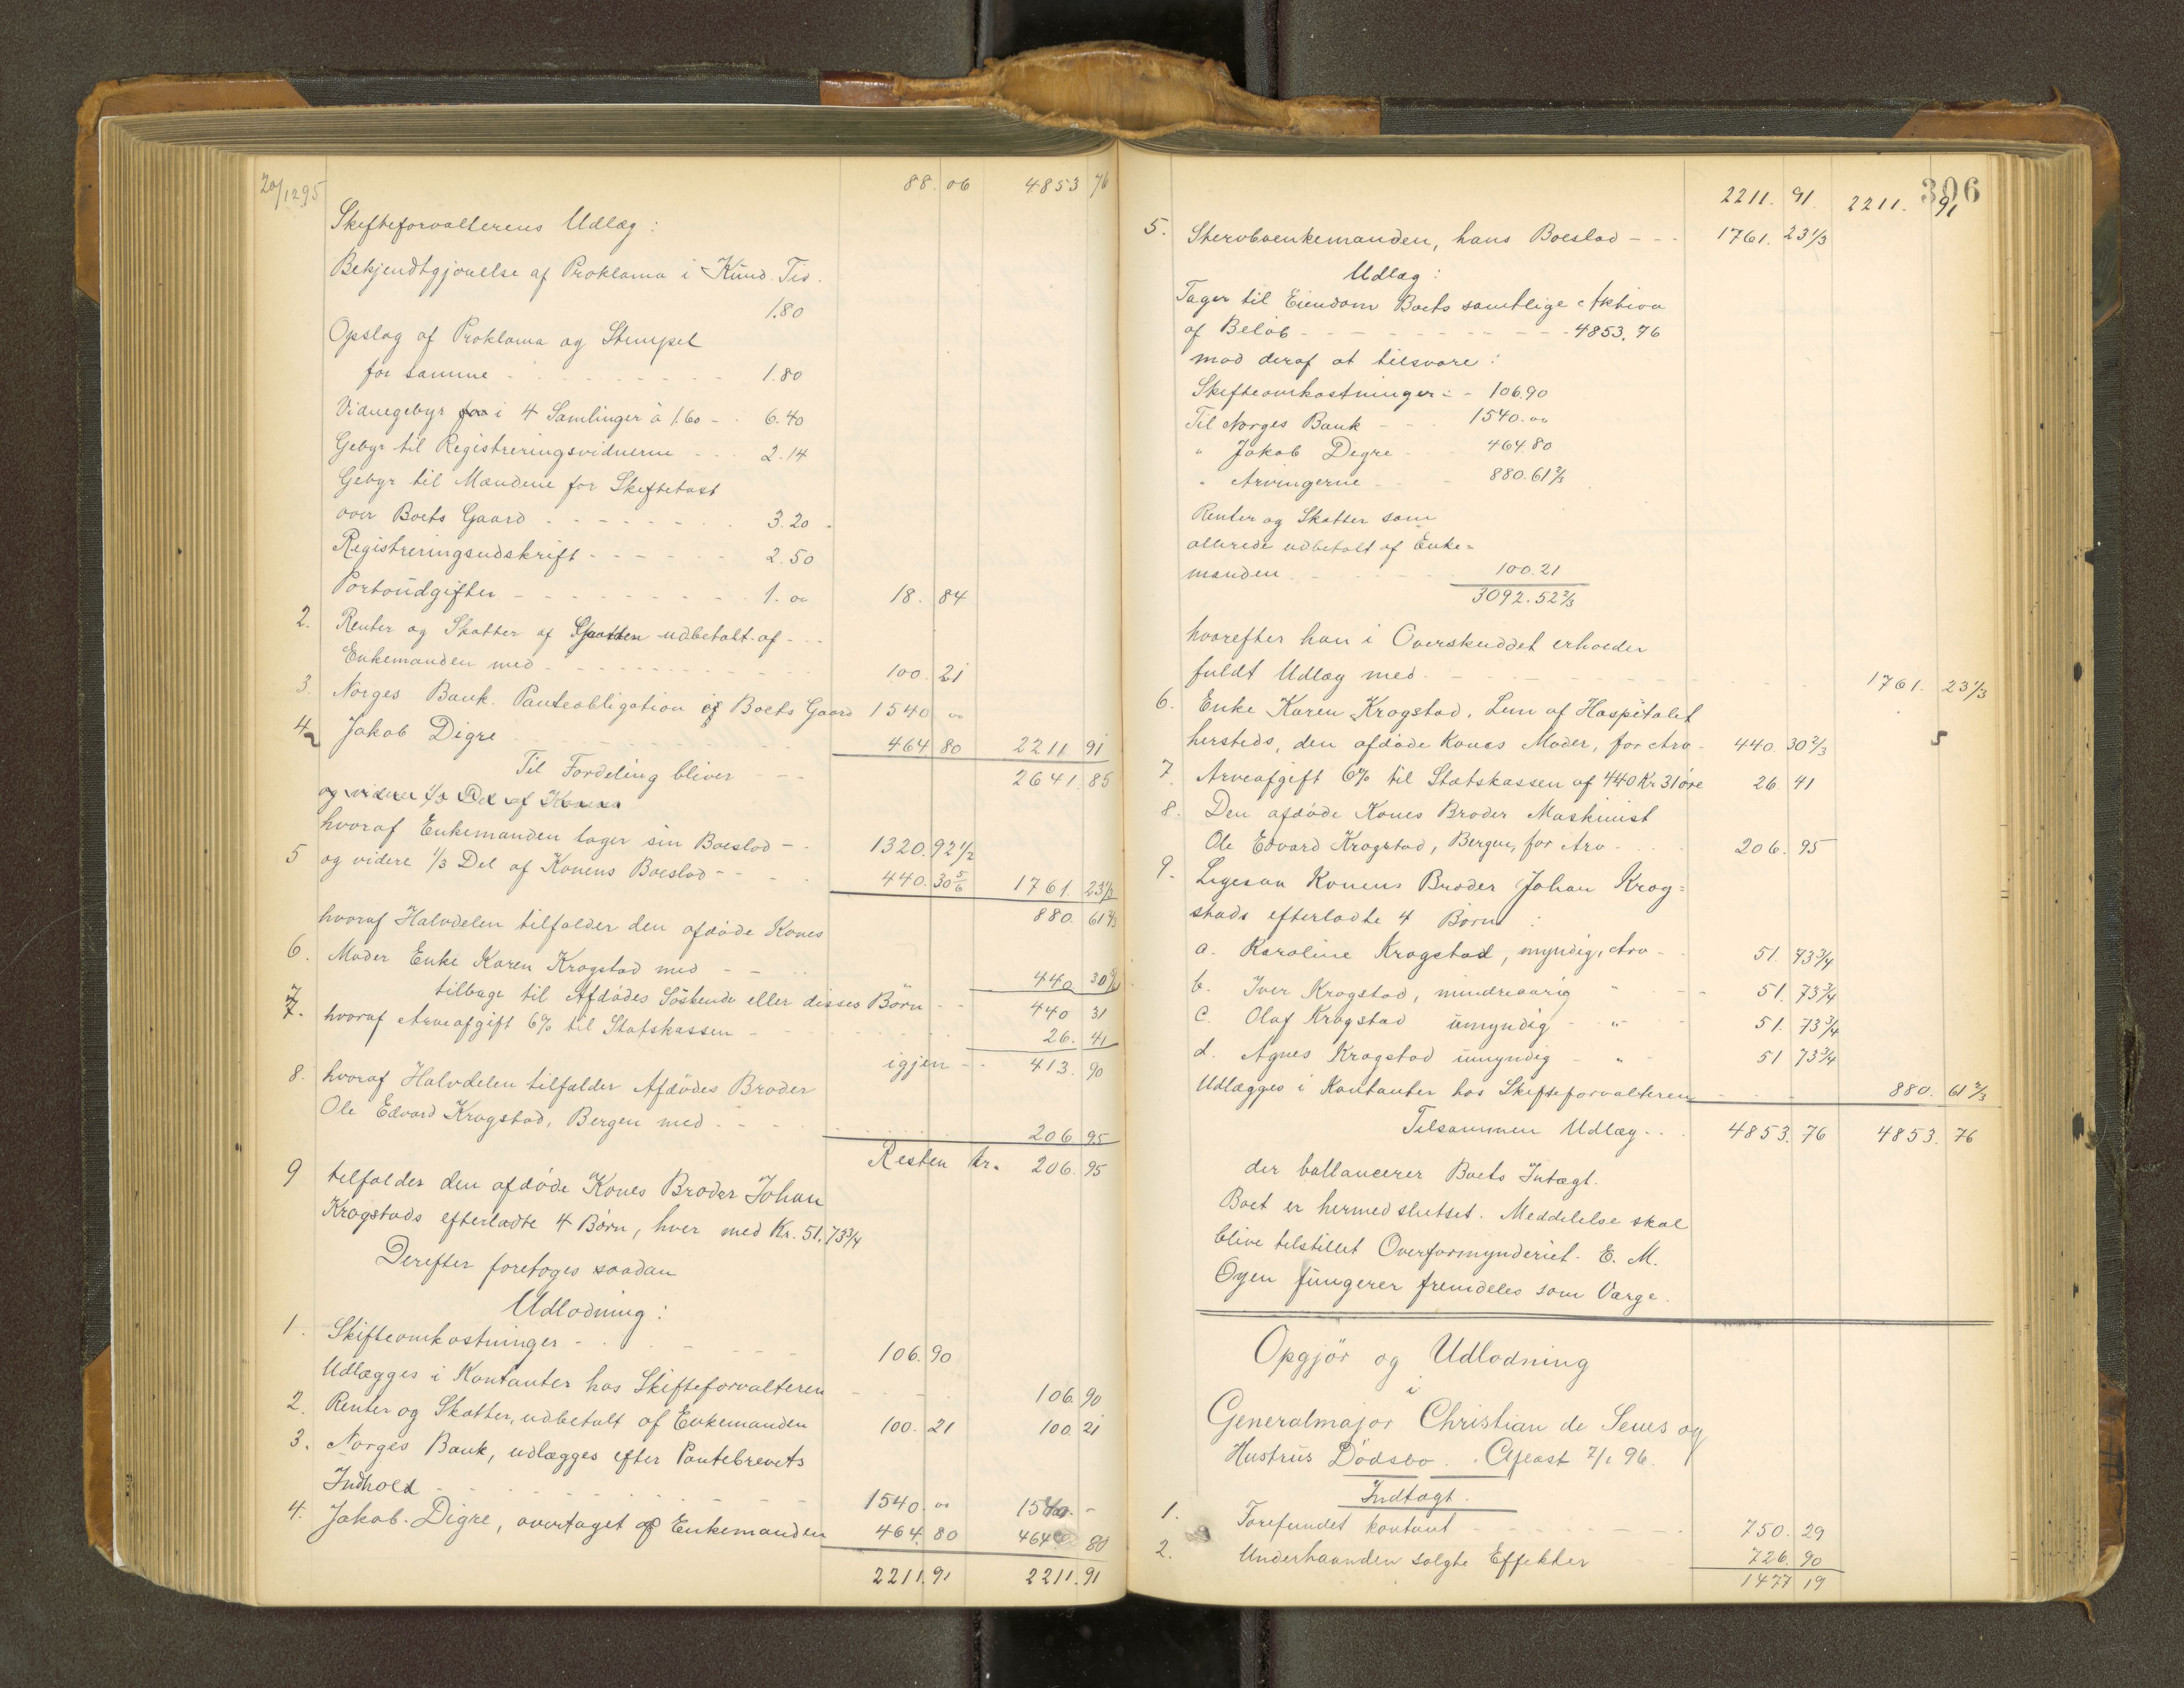 20/12 95
88. 06 4853 76
Skifteforvalterens Udlæg:
Bekjendtgjørelse af Proklama i Kund. Tid.
1.80
Opslag af Proklama og Stempel
for samme - - - 1.80
Vidnegebyr for i 4 Samlinger à 1.60 - - 6.40
Gebyr til Registreringsvidnerne - - - 2.14
Gebyr til Mændene for Skiftetaxt
over Boets Gaard - - - 3.20
Registreringsudskrift - - - 2.50
Portoudgifter - - - 1.00 18. 84
2. Renter og Skatter af udbetalt af - - -
Enkemanden med - - - 100. 21
3. Norges Bank. Panteobligation i Boets Gaard 1540 00
4. Jakob Digre - - - 464 80 2211 91
Til Fordeling bliver - - - 2641. 85
og videre 1/3 Del af Konens
hvoraf Enkemanden tager sin Boeslod - - 1320. 92 1/2
5 og videre 1/3 Del af Konens Boeslod - - - 440. 30 5/6 1761 23 1/3
880. 61 2/3
hvoraf Halvdelen tilfalder den afdøde Kones
6. Moder Enke Karen Krogstad med - - - 440 30 2/3
tilbage til Afdødes Söskende eller disses Börn - - 440 31
7. hvoraf Arveafgift 6% til Statskassen - - - 26. 41
igjen - - 413. 90
8. hvoraf Halvdelen tilfalder Afdødes Broder
Ole Edvard Krogstad, Bergen med - - - 206 95
Resten kr. 206. 95
9 tilfalder den afdøde Kones Broder Johan
Krogstads efterladte 4 Børn, hver med Kr. 51.73 3/4
Derefter foretoges saadan
Udlodning:
1. Skifteomkostninger - - - 106. 90
Udlægges i Kontanter hos Skifteforvalteren - - - 106. 90
2. Renter og Skatter, udbetalt af Enkemanden 100. 21 100 21
3. Norges Bank, udlægges efter Pantebrevets
Indhold - - - 1540. 00 1540. -
4. Jakob Digre, overtaget af Enkemanden 464. 80 464 80
2211. 91 2211. 91
306
2211. 91. 2211. 91
5. Stervboenkemanden, hans Boeslod - - - 1761. 23 1/3
Udlæg:
Tager til Eiendom Boets samtlige Aktiva
af Beløb - - - 4853.76
mod deraf at tilsvare:
Skifteomkostninger - - 106.90
Til Norges Bank - - - 1540.00
" Jakob Digre - - 464.80
" Arvingerne - - - 880.61 2/3
Renter og Skatter som
allerede udbetalt af Enke=
manden - - - 100.21
3092.52 2/3
hvorefter han i Overskuddet erholder
fuldt Udlæg med - - - 1761. 23 1/3
6. Enke Karen Krogstad, Lem af Hospitalet
hersteds, den afdøde Kones Moder, for Arv - 440. 30 2/3
7. Arveafgift 6% til Statskassen af 440 Kr 31 øre 26 41
8. Den afdøde Kones Broder Maskinist
Ole Edvard Krogstad, Bergen, for Arv - - - 206. 95
9. Ligesaa Konens Broder Johan Krog=
stads efterladte 4 Børn:
a. Karoline Krogstad, myndig, Arv - - 51. 73 3/4
b. Iver Krogstad, mindreaarig " - - 51. 73 3/4
c. Olaf Krogstad umyndig - " - - 51. 73 3/4
d. Agnes Krogstad umyndig - " - 51 73 3/4
Udlægges i Kontanter hos Skifteforvalteren - - - 880. 61 2/3
Tilsammen Udlæg - - 4853. 76 4853. 76
der ballancerer Boets Indtægt.
Boet er hermed sluttet. Meddelelse skal
blive tilstillet Overformynderiet. E. M.
Øyen fungerer fremdeles som Værge.
Opgjör og Udlodning
i
Generalmajor Christian de Seues og
Hustrus Dödsbo. Aflæst 7/1 96.
Indtægt.
1. Forefundet kontant - - - 750. 29
2. Underhaanden solgte Effekter 726. 90
1477 19